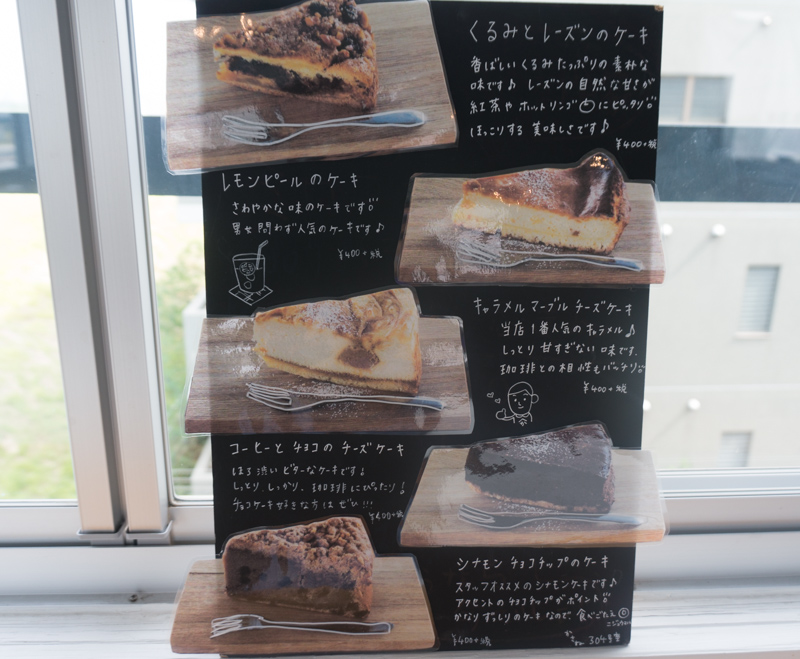 くるみとレーズンのケーキ
香ばしいくるみたっぷりの素朴な
味です♪ レーズンの自然な甘さが
紅茶やホットリンゴにピッタリ!!
ほっこりする美味しさです♪
¥400+税
レモンピールのケーキ
さわやかな味のケーキです!!
男女問わず人気のケーキです♪
¥400+税
キャラメルマーブルチーズケーキ
当店1番人気のキャラメル♪
しっとり甘すぎない味です。
珈琲との相性もバッチリ!!
¥400+税
コーヒーとチョコのチーズケーキ
ほろ渋いビターなケーキです!
しっとり、しっかり、珈琲にぴったり!
チョコケーキ好きな方はぜひ!!!
¥400+税
シナモンチョコチップのケーキ
スタッフオススメのシナモンケーキです♪
アクセントのチョコチップがポイント!!
かなりずっしりのケーキなので、食べごたえ◎
¥400+税
304号室